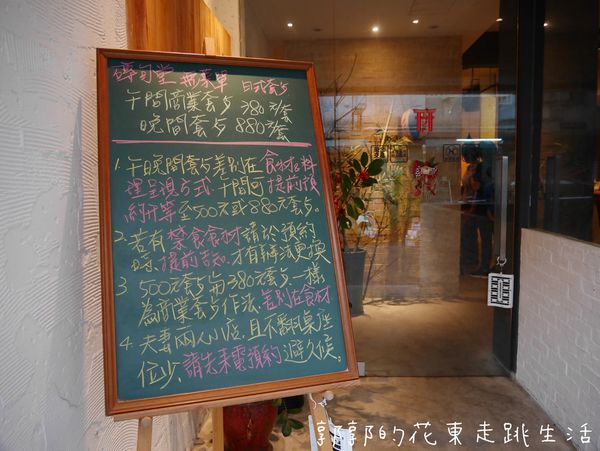 無菜單 日式套歺
午間商業套歺 380元/套
晚間套歺 880元/套
1. 午晚間套歺差別在食材&料
理呈現方式.午間可提前預
約升等至500元或880元套歺。
2. 若有禁食食材請於預約
時,提前告知,才有辦法更換
3. 500元套歺與380元套歺一樣
為商業套歺作法,差別在食材
4. 夫妻兩人小店,且不翻桌座
位少,請先來電預約避久候。
郭郭的花東走跳生活